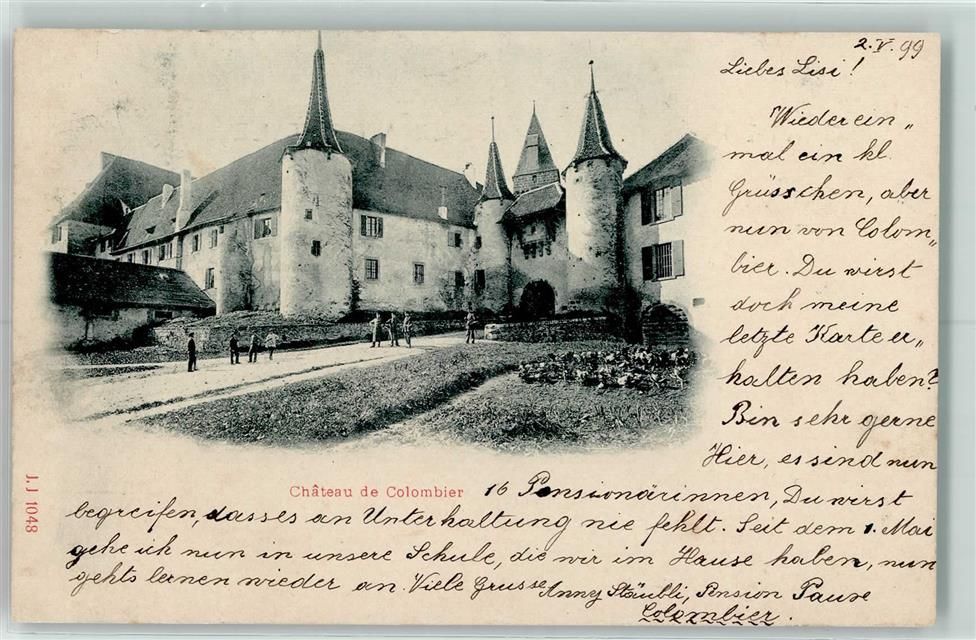 2. V. 99
Liebes Lisi!
Wiederein„
mal ein kl.
Grüsschen, aber
nun von Colom„
bier. Du wirst
doch meine
letzte Karte er„
halten haben?
Bin sehr gerne
Hier, es sind nun
Château de Colombier
16 Pensionärinnen, Du wirst
begreifen, dass es an Unterhaltung nie fehlt. Seit dem 1. Mai
gehe ich nun in unsere Schule, die wir im Hause haben, nun
gehts lernen wieder an. Viele Grusse Anny Stäubli, Pension Paure
Colombier.
J. J 1048